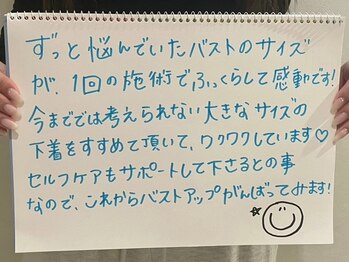 ずっと悩んでいたバストのサイズ
が、1回の施術でふっくらして感動です!
今まででは考えられない大きなサイズの
下着をすすめて頂いて、ワクワクしています♡
セルフケアもサポートして下さるとの事
なので、これからバストアップがんばってみます!